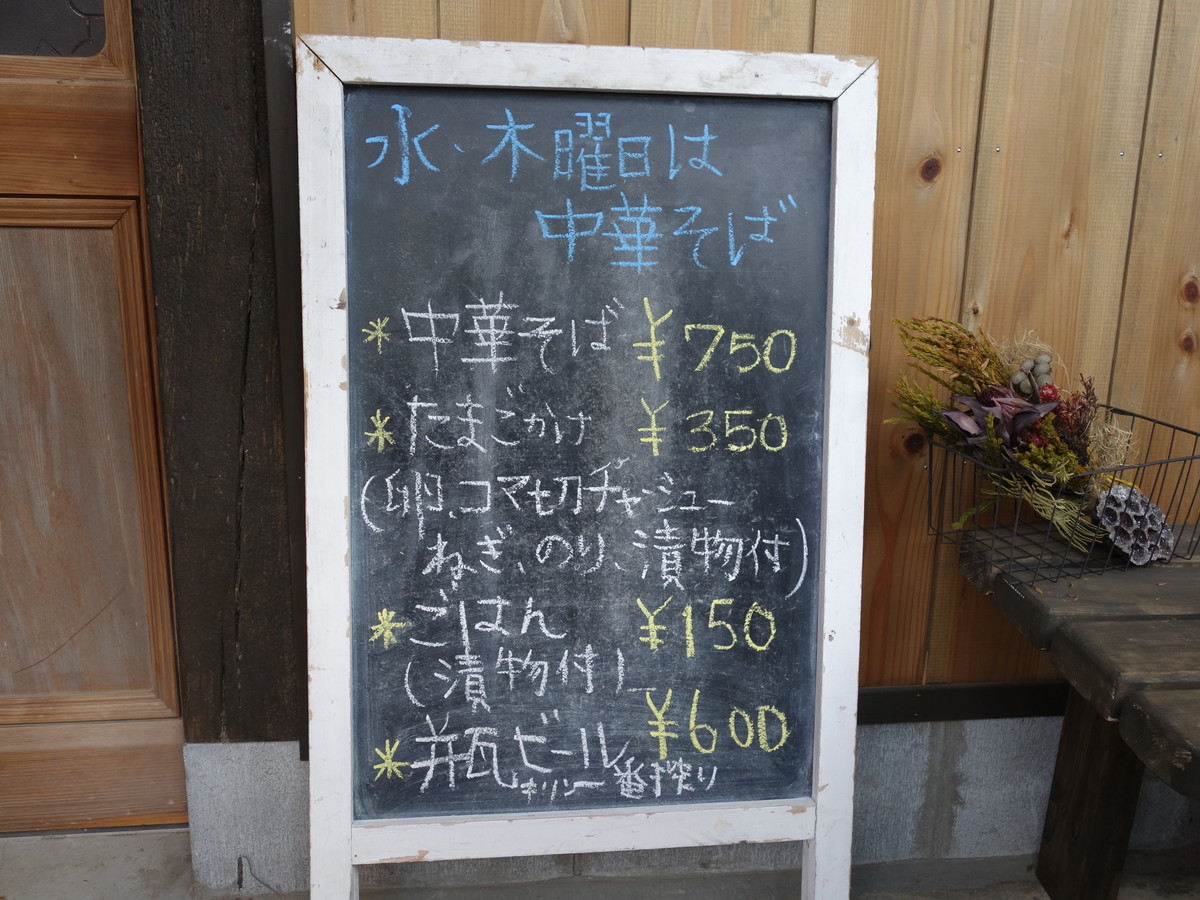 水、木曜日は
中華そば
* 中華そば ¥750
* たまごかけ ¥350
(卵、コマ切チャーシュー
ねぎ、のり、漬物付)
* ごはん ¥150
(漬物付)
* 瓶ビール ¥600
キリン一番搾り